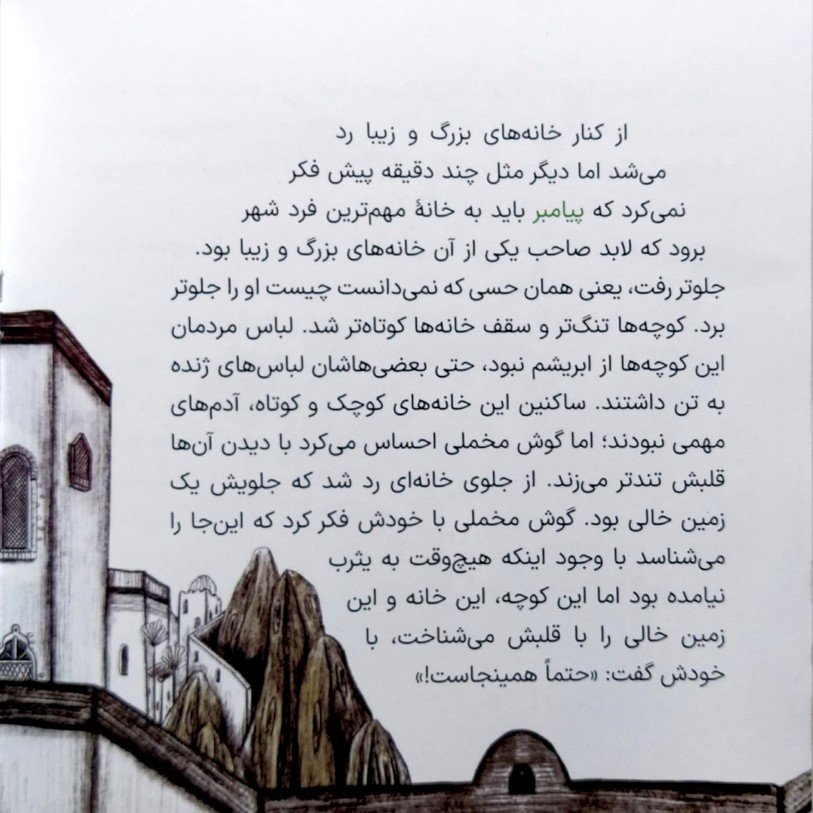 از کنار خانه‌های بزرگ و زیبا رد
می‌شد اما دیگر مثل چند دقیقه پیش فکر
نمی‌کرد که پیامبر باید به خانهٔ مهم‌ترین فرد شهر
برود که لابد صاحب یکی از آن خانه‌های بزرگ و زیبا بود.
جلوتر رفت، یعنی همان حسی که نمی‌دانست چیست او را جلوتر
برد. کوچه‌ها تنگ‌تر و سقف خانه‌ها کوتاه‌تر شد. لباس مردمان
این کوچه‌ها از ابریشم نبود، حتی بعضی‌هاشان لباس‌های ژنده
به تن داشتند. ساکنین این خانه‌های کوچک و کوتاه، آدم‌های
مهمی نبودند؛ اما گوش مخملی احساس می‌کرد با دیدن آن‌ها
قلبش تندتر می‌زند. از جلوی خانه‌ای رد شد که جلویش یک
زمین خالی بود. گوش مخملی با خودش فکر کرد که این‌جا را
می‌شناسد با وجود اینکه هیچ‌وقت به یثرب
نیامده بود اما این کوچه، این خانه و این
زمین خالی را با قلبش می‌شناخت، با
خودش گفت: «حتماً همینجاست!»